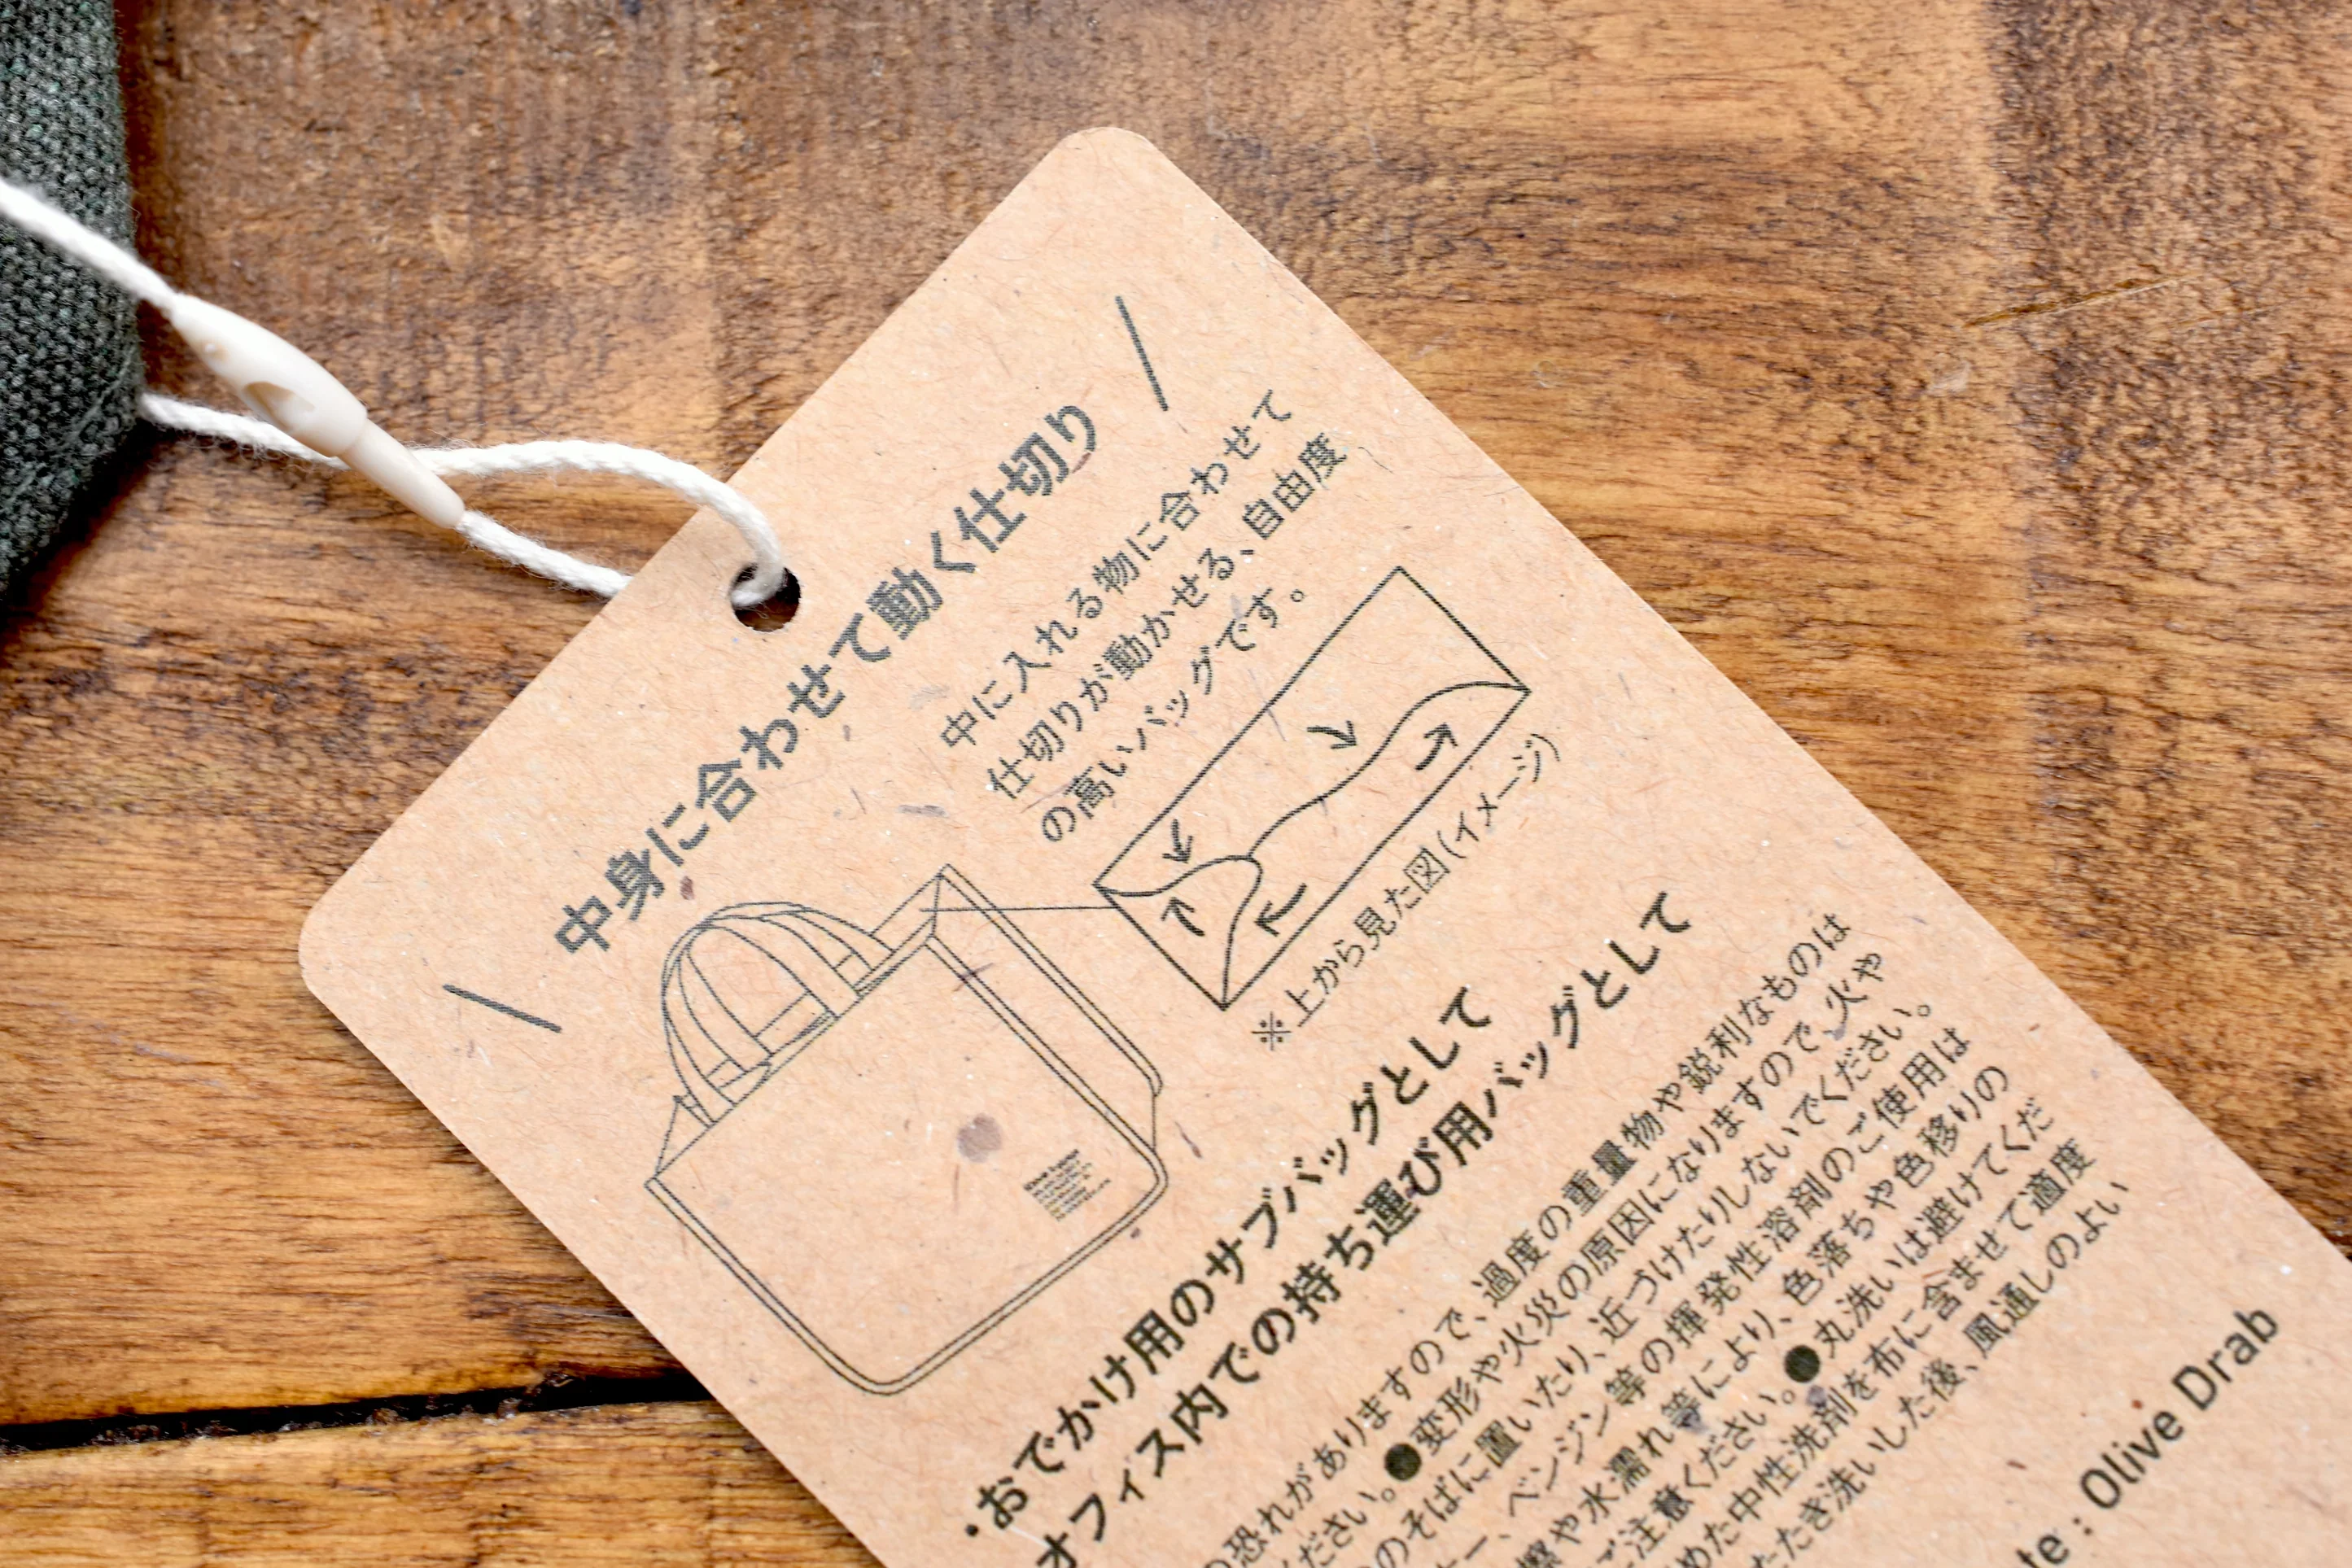 中身に合わせて動く仕切り
中に入れる物に合わせて
仕切りが動かせる、自由度
の高いバッグです。
※上から見た図(イメージ)
・おでかけ用のサブバッグとして
オフィス内での持ち運び用バッグとして
恐れがありますので、過度の重量物や鋭利なものは
ださい。●変形や火災の原因になりますので、火や
のそばに置いたり、近づけたりしないでください。
ー、ベンジン等の揮発性溶剤のご使用は
擦や水濡れ等により、色落ちや色移りの
ご注意ください。●丸洗いは避けてくだ
めた中性洗剤を布に含ませて適度
たたき洗いした後、風通しのよい
te : Olive Drab